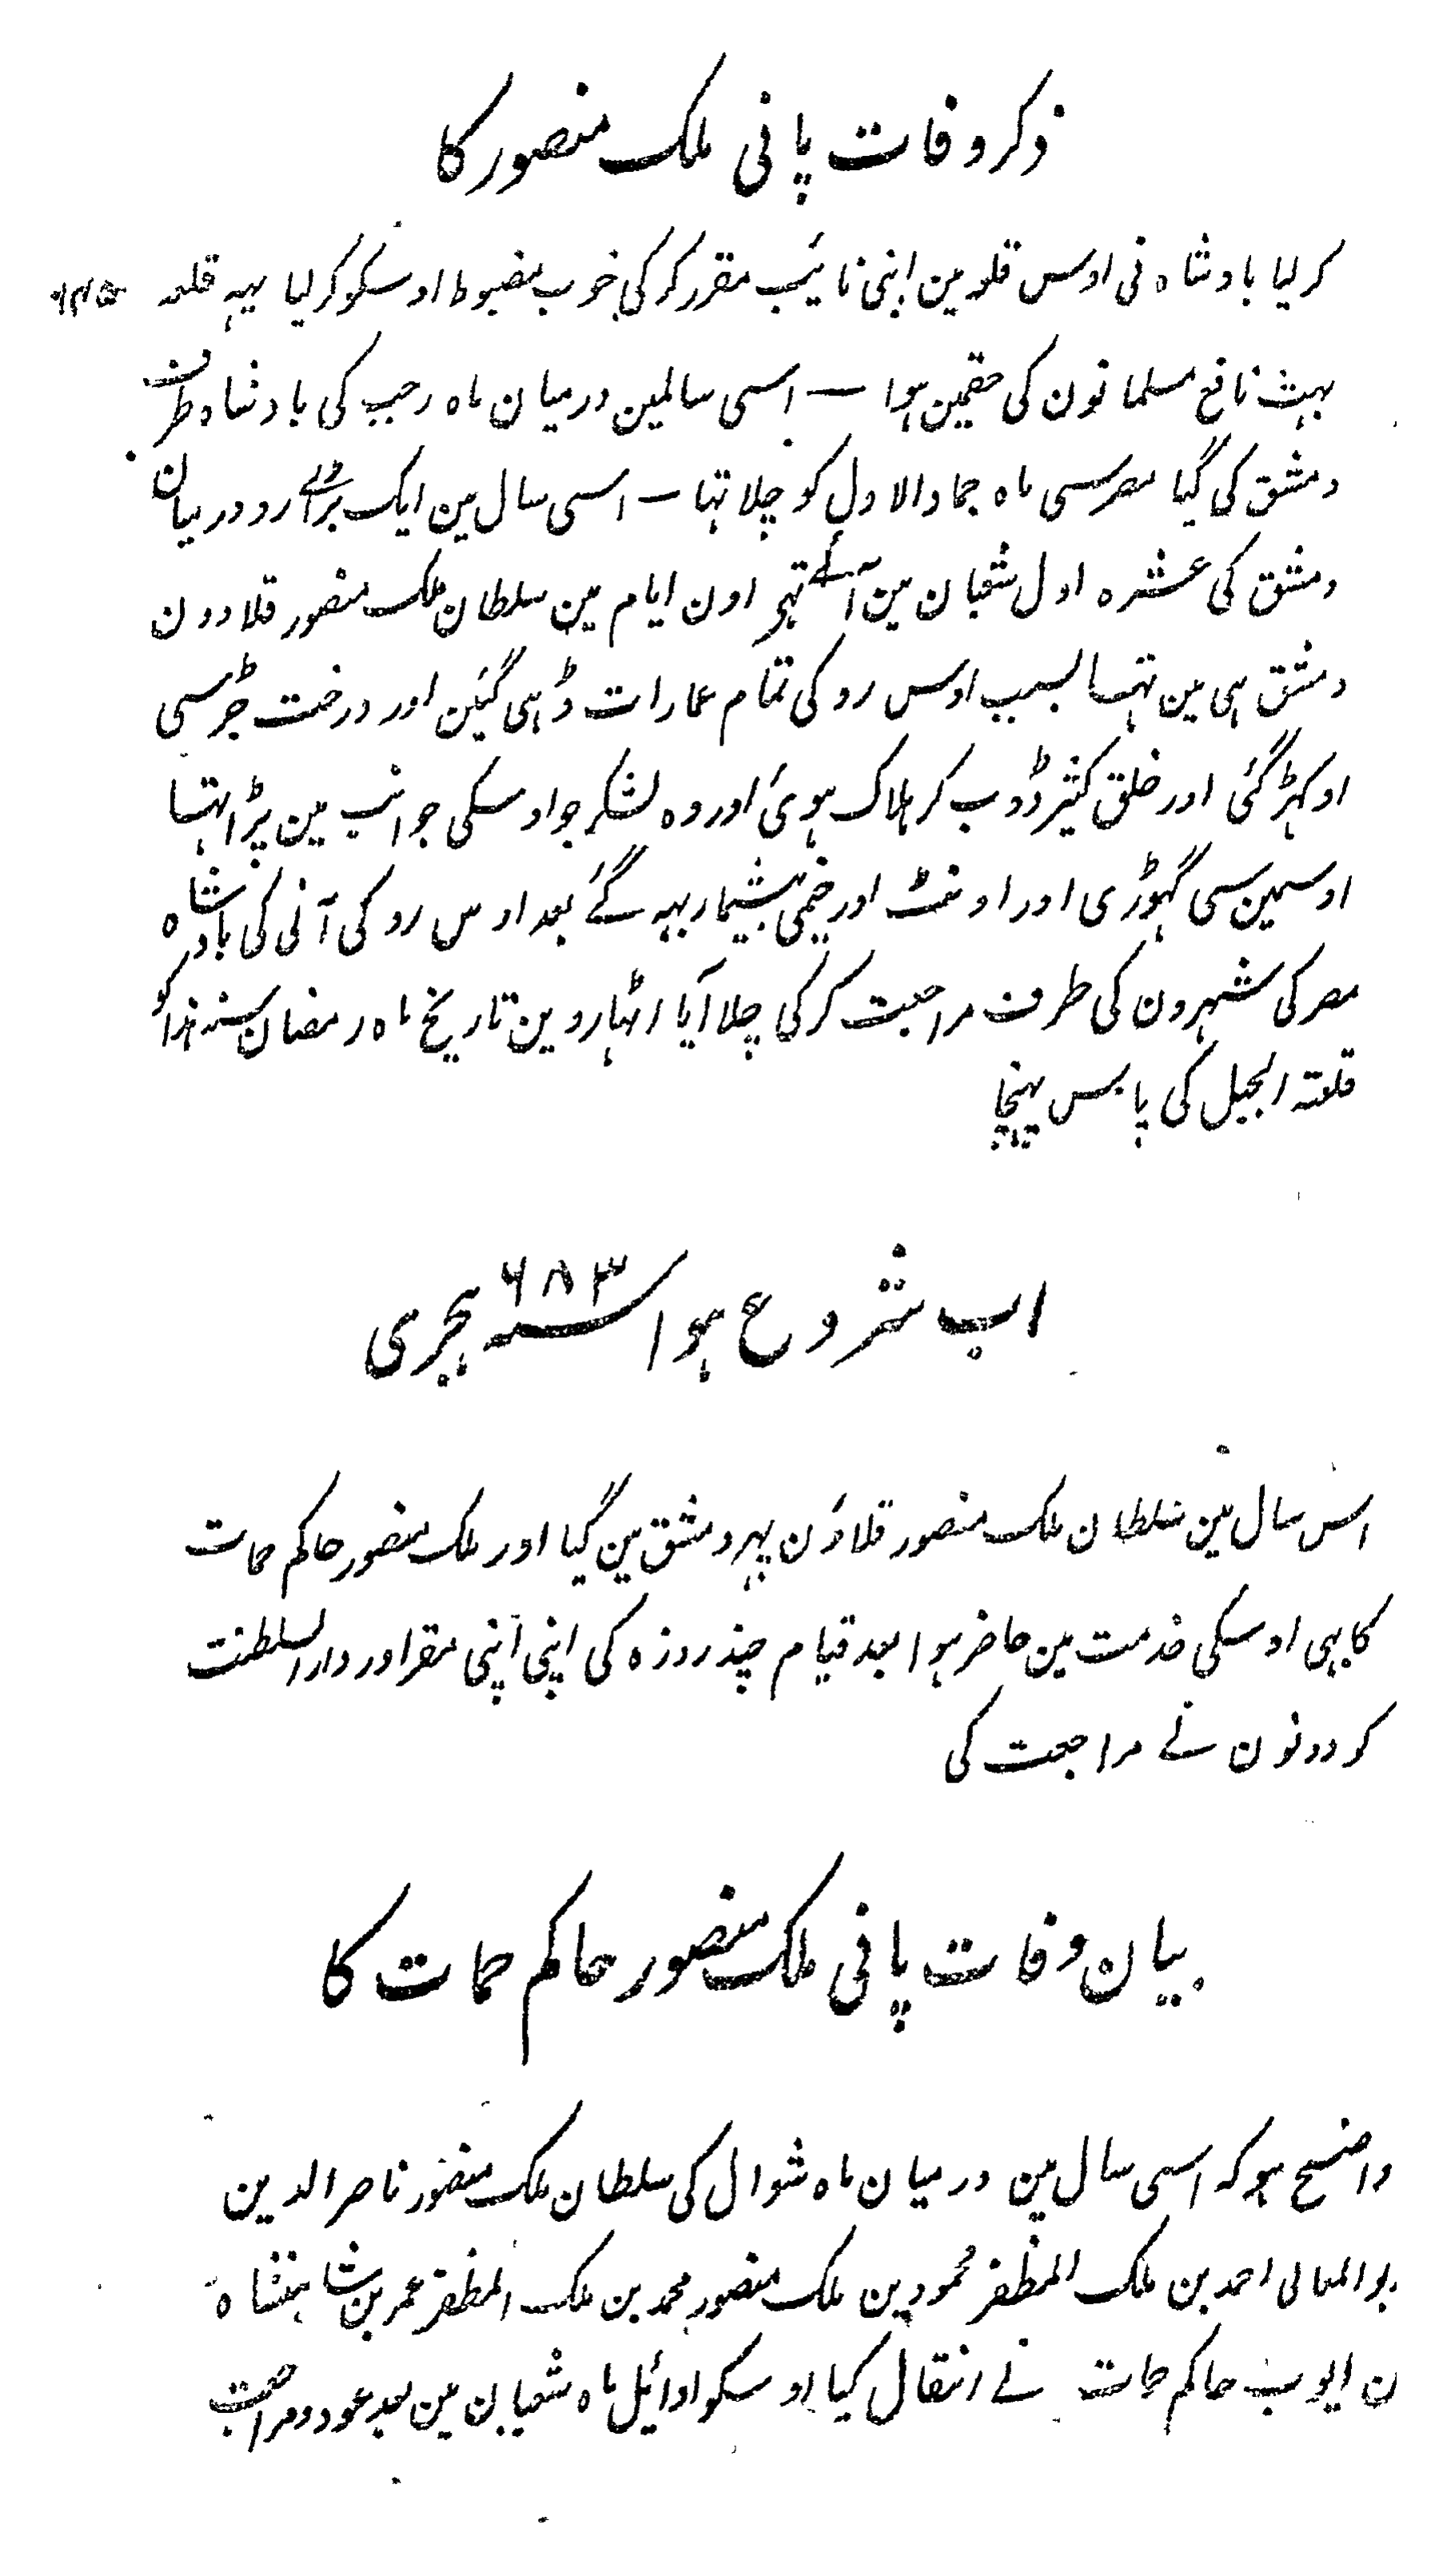 ذکر وفات پانی ملک منصور کا
کرلیا بادشاہ نی اوس قلعہ مین اپنی نائیب مقرر کرکی خوب مضبوط اوسکو کرلیا یہہ قلعہ
بہت نافع مسلمانون کی حقمین ہوا — اسی سالمین درمیان ماہ رجب کی بادشاہ طرف
دمشق کی گیا مصرسی ماہ جمادالاول کو چلا تہا — اسی سال مین ایک بڑاے رو درمیان
دمشق کی عشرہ اول شعبان مین آئے تہی اون ایام مین سلطان ملک منصور قلادون
دمشق ہی مین تہا بسبب اوس رو کی تمام عمارات ڈہی گئین اور درخت جڑسی
اوکہڑ گئی اور خلق کثیر ڈوب کر ہلاک ہوئی اور وہ لشکر جو اوسکی جوانب مین پڑا تہا
اوسمین سی گہوڑی اور اونٹ اور خیمی بیشمار بہہ گئے بعد اوس رو کی آنی کی بادشاہ
مصر کی شہرون کی طرف مراجعت کرکی چلا آیا اٹہاروین تاریخ ماہ رمضان سنہ ہذا کو
قلعتہ الجبل کی پاس پہنچا
اب شروع ہوا سنہ ۶۸۳ ہجری
اس سال مین سلطان ملک منصور قلاؤن پہر دمشق مین گیا اور ملک منصور حاکم حمات
کا بہی اوسکی خدمت مین حاضر ہوا بعد قیام چند روزہ کی اپنی اپنی مقر اور دار السلطنت
کو دونون نے مراجعت کی
بیان وفات پانی ملک منصور حاکم حمات کا
واضح ہو کہ اسی سال مین درمیان ماہ شوال کی سلطان ملک منصور ناصر الدین
بو المعالی احمد بن ملک المظفر محمود بن ملک منصور محمد بن ملک المظفر عمر بن شاہنشاہ
ن ایوب حاکم حمات نے انتقال کیا اوسکو اوائیل ماہ شعبان مین بعد عود و مراجعت